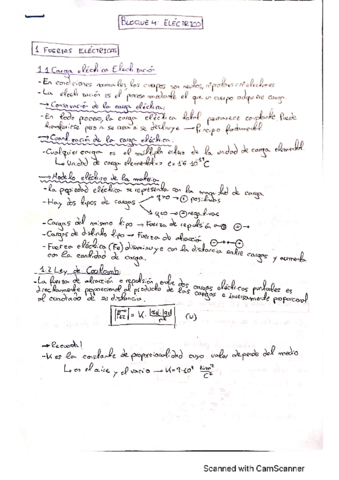 BLOQUE 4: ELÉCTRICO
1 FUERZAS ELÉCTRICAS
1.1 Carga eléctrica Electrización
- En condiciones normales los cuerpos son neutros,
- La electrización es el proceso mediante el que un cuerpo adquiere carga.
→ Conservación de la carga eléctrica:
- En todo proceso, la carga eléctrica total permanece constante Puede
transferirse pero ni se crea ni se destruye → Principio fundamental
de la carga eléctrica:
- Cualquier carga es el múltiplo entero de la unidad de carga elemental
↳ Unidad de carga elemental
→ Modelo eléctrico de la materia:
- La propiedad eléctrica se representa con la magnitud de carga
- Hay dos tipos de cargas → q>0 → ⊕ positivas
→ q<0 → ⊖ negativas
- Cargas del mismo tipo → Fuerza de repulsión
- Cargas de distinto tipo → Fuerza de atracción
- Fuerza eléctrica (Fe) disminuye con la distancia entre cargas y aumenta
con la cantidad de carga.
1.2 Ley de Coulomb
- La fuerza de atracción o repulsión entre dos cargas eléctricas puntuales es
directamente proporcional al producto de las cargas e inversamente proporcional
al cuadrado de su distancia.
(N)
→ Recuerda!
- K es la constante de proporcionalidad cuyo valor depende del medio
↳ en el aire y el vacío → K = 9·10⁹ N·m²/C²
Scanned with CamScanner